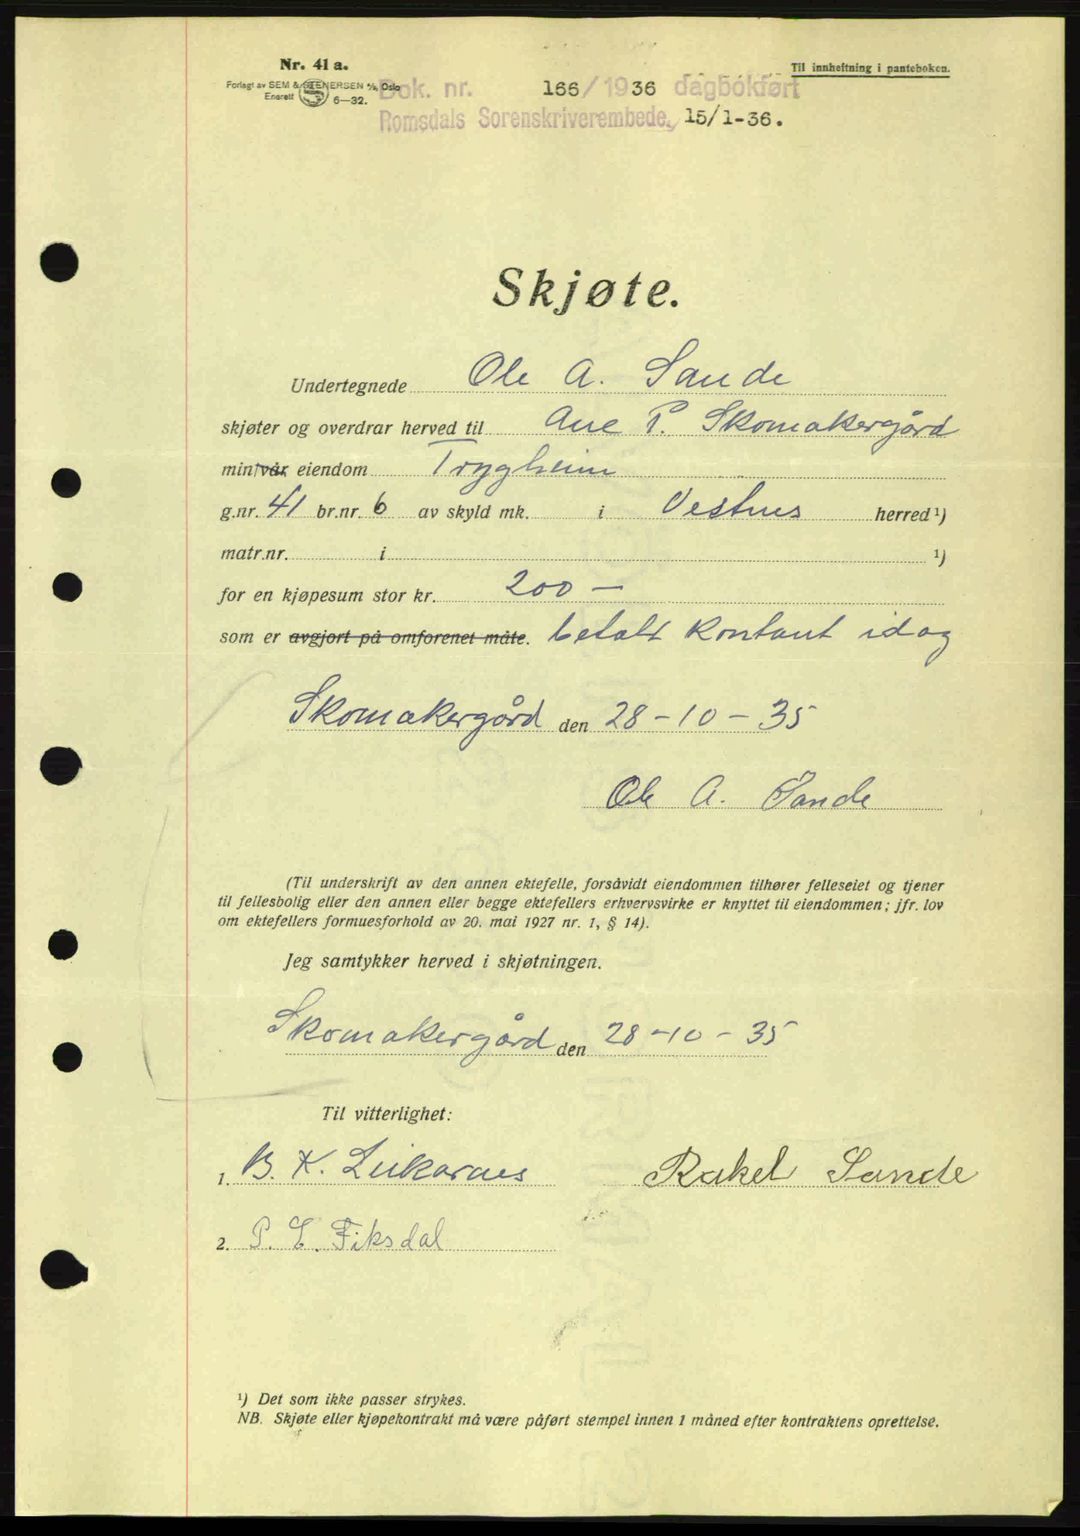 Nr. 41 a.
Til innheftning i panteboken.
Forlagt av SEM & STENERSEN A/S, Oslo
Enerett 6—32.
Dok. nr. 166/1936 dagbokført
Romsdals Sorenskriverembede, 15/1-36.
Skjøte.
Undertegnede Ole A. Sande
skjøter og overdrar herved til Ane P. Skomakergård
min/vår eiendom Trygheim
g.nr. 41 br.nr. 6 av skyld mk. i Vestnes herred ¹)
matr.nr. i ¹)
for en kjøpesum stor kr. 200 —
som er avgjort på omforenet måte. betalt kontant idag
Skomakergård den 28-10-35
Ole A. Sande
(Til underskrift av den annen ektefelle, forsåvidt eiendommen tilhører felleseiet og tjener
til fellesbolig eller den annen eller begge ektefellers erhvervsvirke er knyttet til eiendommen; jfr. lov
om ektefellers formuesforhold av 20. mai 1927 nr. 1, § 14).
Jeg samtykker herved i skjøtningen.
Skomakergård den 28-10-35
Til vitterlighet:
1. B. K. Leikarnes Rakel Sande
2. P. E. Fiksdal
¹) Det som ikke passer strykes.
NB. Skjøte eller kjøpekontrakt må være påført stempel innen 1 måned efter kontraktens oprettelse.